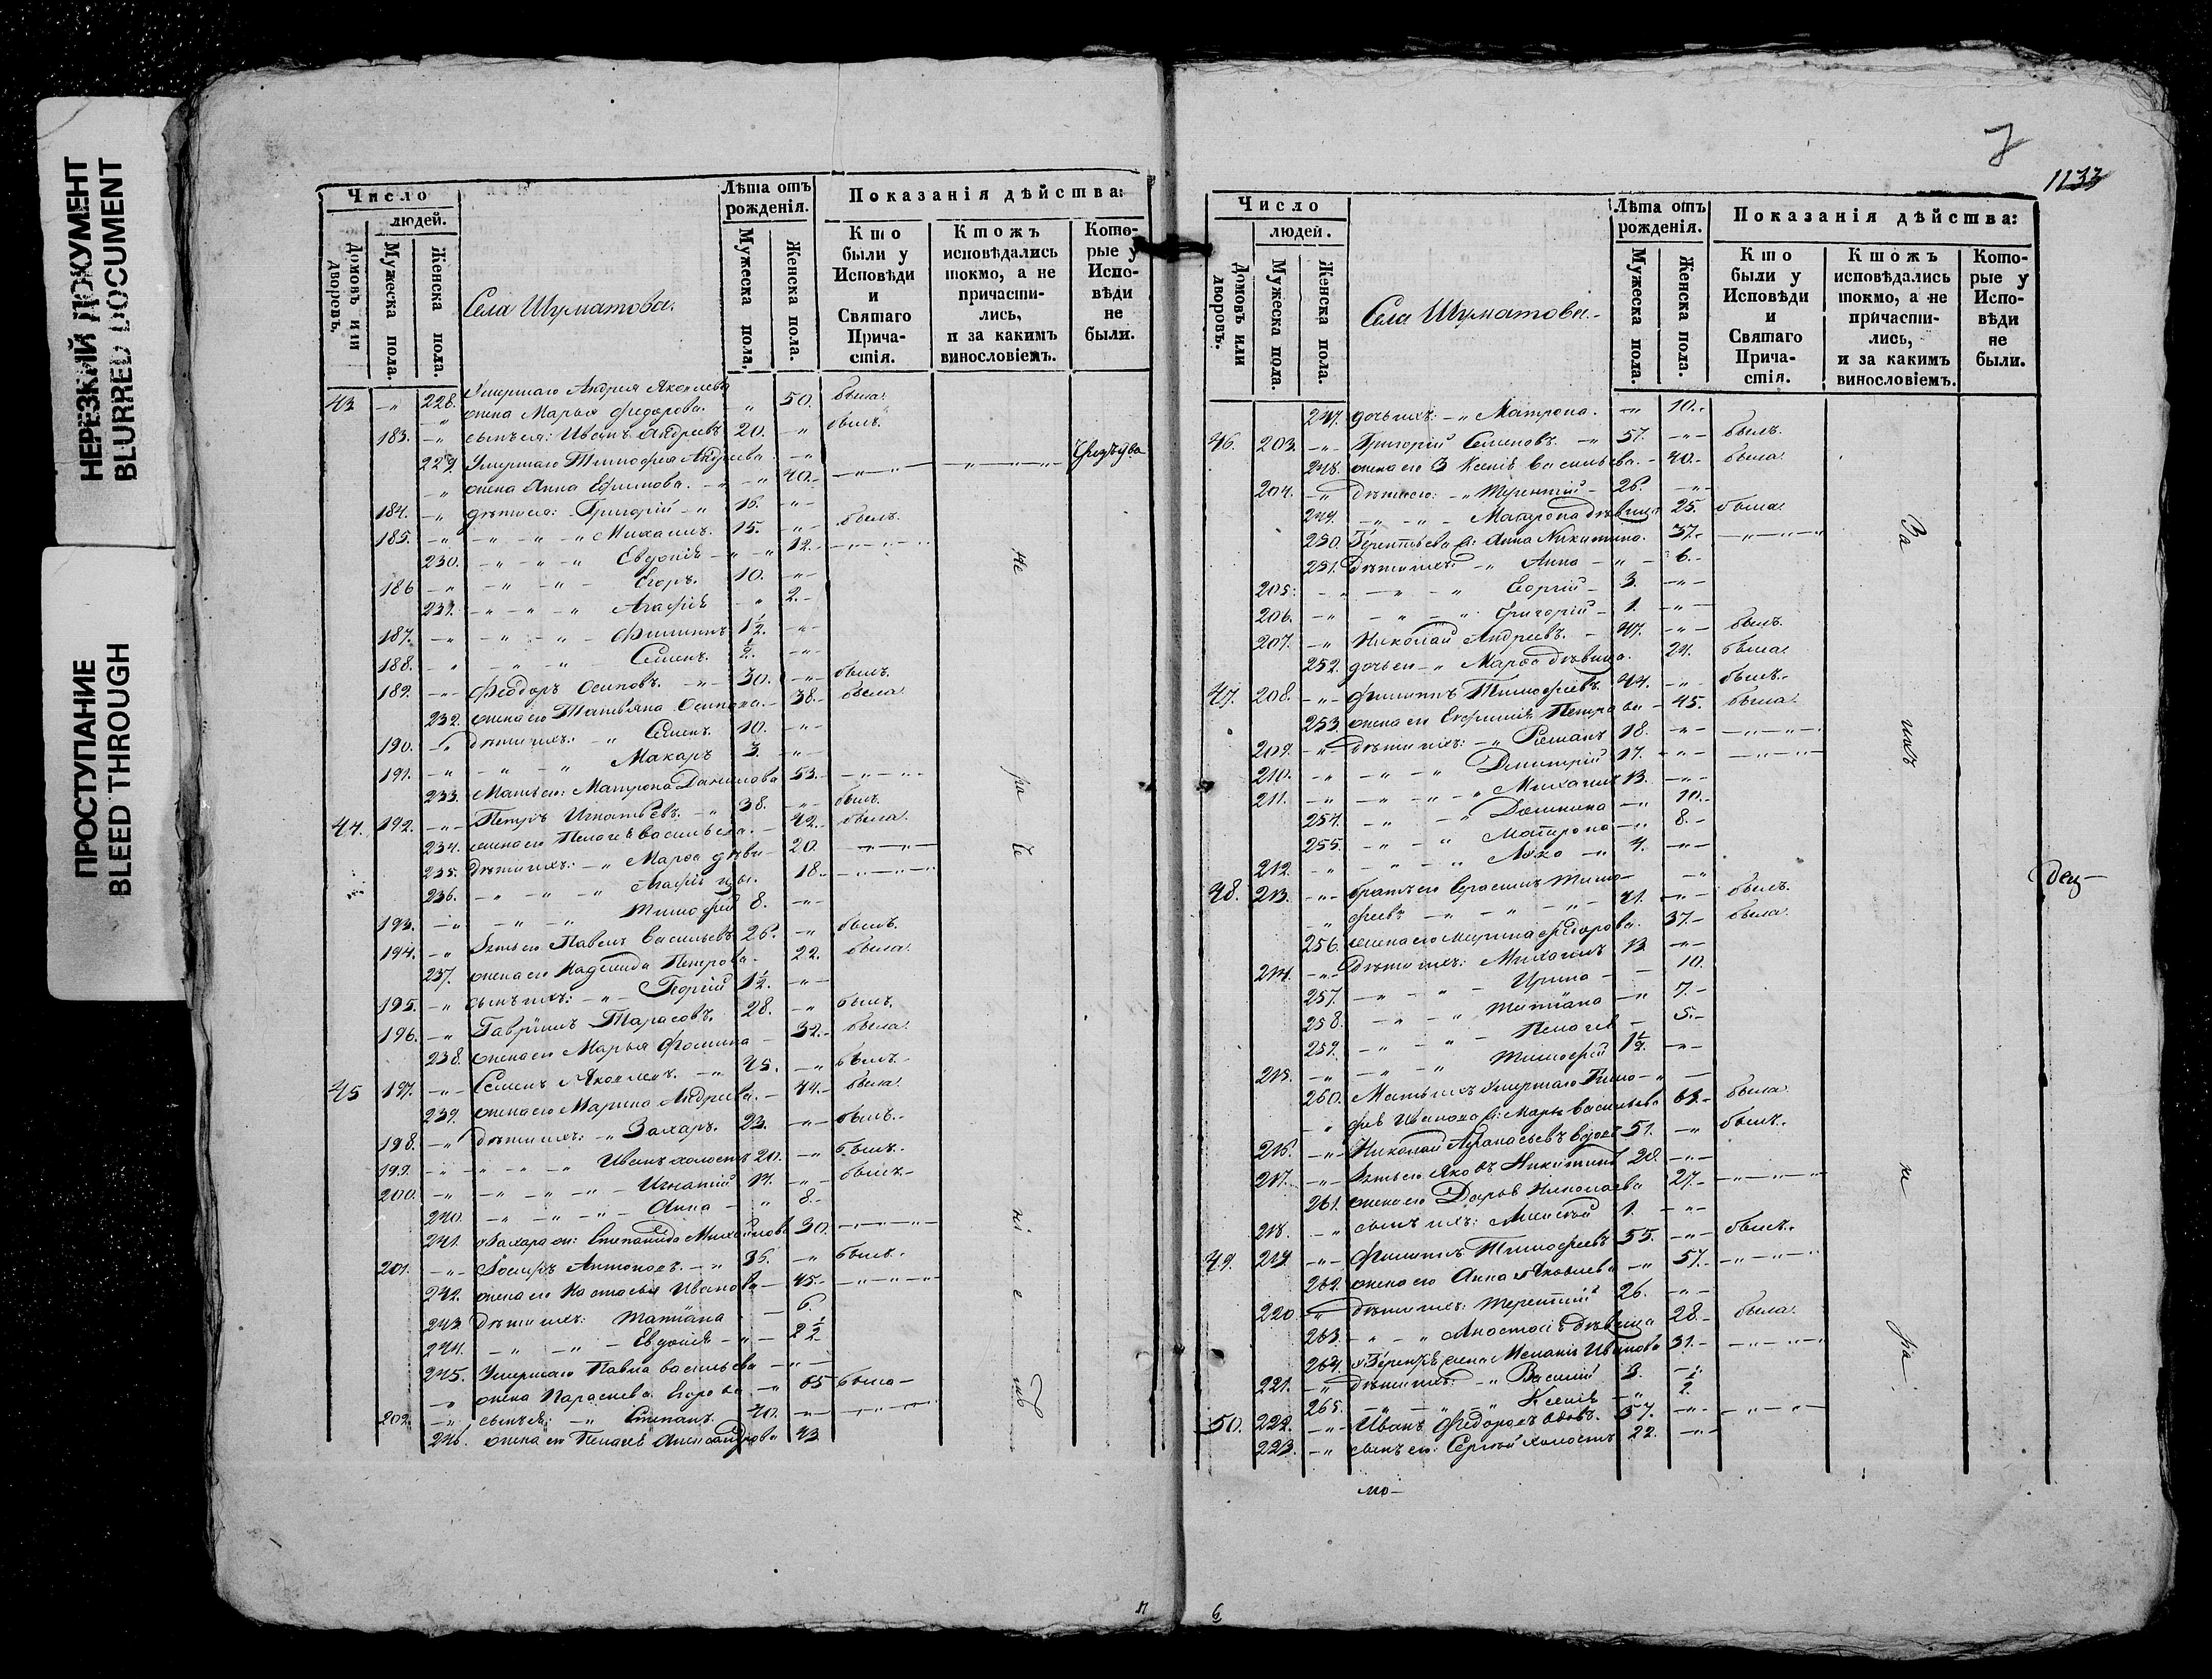 НЕРЕЗКИЙ ДОКУМЕНТ
BLURRED DOCUMENT
ПРОСТУПАНИЕ
BLEED THROUGH
Число
людей.
Домовъ или дворовъ.
Мужеска пола.
Женска пола.
Села Шуматова.
Лѣта отъ рожденія.
Мужеска пола.
Женска пола.
Показанія дѣйства:
Кто были у Исповѣди и Святаго Прича-стія.
Ктожъ исповѣдались токмо, а не причасти-лись, и за какимъ винословіемъ.
Кото-рые у Испо-вѣди не были.
Умершаго Андрея Яковлева
43 228. жена Марья Федорова. 50. была
183. сынъ ея: Иванъ Андреевъ 20. былъ
229. Умершаго Тимофея Андреева
жена Анна Ефимова. 40.
184. дѣти ея: Григорій 16.
185. Михаилъ. 15. былъ
230. Евдокія 12.
186 Егоръ. 10.
231. Агафія 2.
187. Филиппъ 1½.
188. Семенъ. ½.
189. Феодоръ Осиповъ. 30. былъ
232. жена его Татьяна Осипова. 38. была
190. дѣти ихъ: Семенъ 10.
191. Макаръ 3.
233. Мать его: Матрона Данилова 53.
44. 192. Петръ Игнатьевъ. 38. былъ
234. жена его Пелагія Васильева. 42. была
235. дѣти ихъ: Марѳа дѣви 20.
236. Агафія 18.
193. Тимофей 8.
194. Зять его Павелъ Васильевъ 26. былъ
237. жена его Надежда Петрова 22. была
195. сынъ ихъ: Георгій 1½.
196. Гавріилъ Тарасовъ. 28. былъ
238. жена его Марья Фомина 32. была
45 197. Семенъ Яковлевъ. 45. былъ
239. жена его Марина Андреева. 44. была
198. дѣти ихъ: Захаръ. 23. былъ
199. Иванъ холостъ 20. былъ
200. Игнатій 17. былъ
240. Анна 8.
241. Захара ж: Степанида Михайлова 30.
201. Антоновъ. 36. былъ
242. жена его Настасья Иванова 45.
243. дѣти ихъ: Татіана 6.
244. Евдокія 2½
245. Умершаго Павла Васильева
жена Параскева Егорова 65 была
202. сынъ ея: Степанъ. 40.
246. жена его Пелагія Александрова 43
не
ра
че
ні
е
7
1133
Число
людей.
Домовъ или дворовъ.
Мужеска пола.
Женска пола.
Села Шуматова.
Лѣта отъ рожденія.
Мужеска пола.
Женска пола.
Показанія дѣйства:
Кто были у Исповѣди и Святаго Прича-стія.
Ктожъ исповѣдались токмо, а не причасти-лись, и за какимъ винословіемъ.
Кото-рые у Испо-вѣди не были.
247. дочь ихъ: Матрона. 10.
46. 203. Григорій Семеновъ. 57. былъ
248. жена его 3 Ксенія Васильева. 40. была
204. дѣти его: Терентій 26.
249. Матрона дѣвица 25. была
250. Терентьева ж: Анна Никитина. 37.
251. дѣти ихъ: Анна 6.
205. Георгій 3.
206. Григорій 1.
207. Николай Андреевъ. 47. былъ
252. дочь его Марѳа дѣвица. 24. была
47. 208. Филиппъ Тимофеевъ. 44. былъ
253. жена его Евфимія Петрова 45. была
209. дѣти ихъ: Романъ 18.
210. Димитрій 17.
211. Михаилъ 13.
254. Домнина 10.
255. Матрона 8.
212. 4.
48. 213. братъ его Герасимъ Тимо
феевъ 41. былъ
256. жена его Марина Федорова. 37. была
214. дѣти ихъ: Михаилъ 13.
257. Ирина 10.
258. Татіана 7.
259. Пелагія 5.
215. Тимофей 1½.
260. Мать ихъ умершаго Тимо
фея Иванова ж: Марья Васильева 61. была
216. Николай Афанасьевъ вдовъ 51. былъ
217. Зять его Яковъ Никитинъ 28.
261. жена его Дарья Николаева 27.
218. сынъ ихъ: Алексѣй 1.
49. 219. Филиппъ Тимофеевъ 55. былъ
262. жена его Анна Яковлева 57.
220. дѣти ихъ: Терентій 26.
263. Анастасія дѣвица 28. была
264. жена Меланія Иванова 31.
221. дѣти ихъ: Василій 3.
265. Ксенія ½.
50. 222. Иванъ Федоровъ вдовъ. 57.
223. сынъ его: Сергѣй холостъ 22.
Ва
ка
6